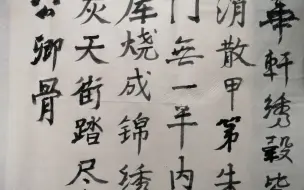 華軒绣毂皆
消散甲第朱
门無一半内
库烧成锦绣
灰天街踏尽
公卿骨